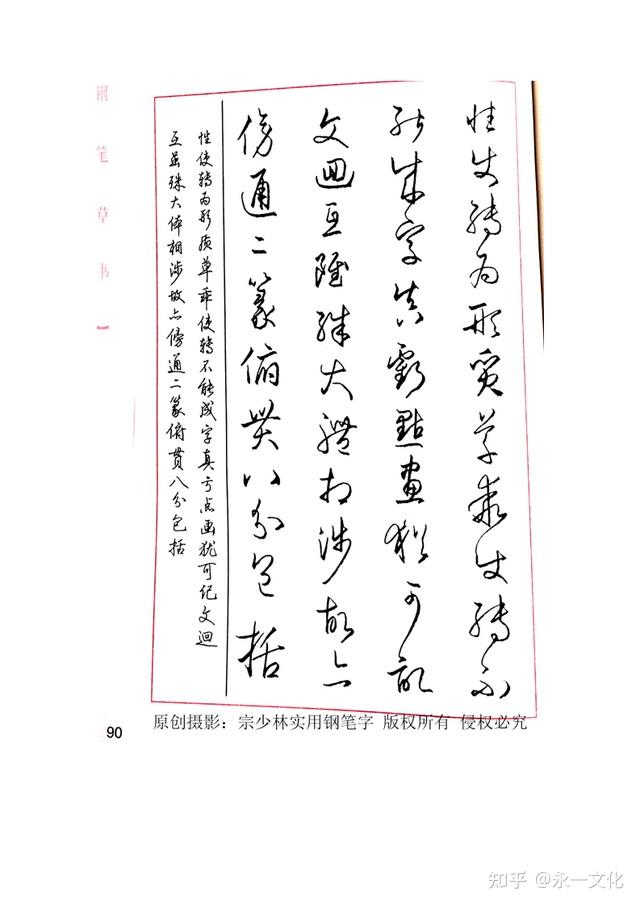 性使轉為形質草乖使轉不
能成字真虧點畫猶可記
文迴互雖殊大體相涉故亦
傍通二篆俯貫八分包括
性使转为形质草乖使转不能成字真亏点画犹可记文迴
互虽殊大体相涉故亦傍通二篆俯贯八分包括
钢笔草书
90
原创摄影：宗少林实用钢笔字 版权所有 侵权必究
知乎 @永一文化